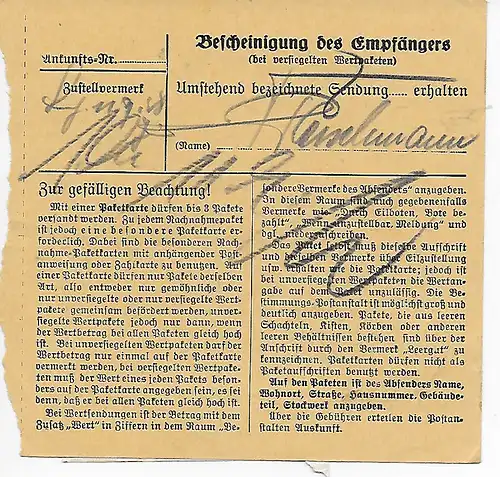 Bescheinigung des Empfängers
(bei versiegelten Wertpaketen)
Ankunfts-Nr.
Zustellvermerk
Umstehend bezeichnete Sendung..... erhalten
(Name)
Zur gefälligen Beachtung!
Mit einer Paketkarte dürfen bis 3 Pakete
versandt werden. Zu jedem Nachnahmepaket
ist jedoch eine besondere Paketkarte er-
forderlich. Dabei sind die besonderen Nach-
nahme-Paketkarten mit anhängender Post-
anweisung oder Zahlkarte zu benutzen. Auf
einer Paketkarte dürfen nur Pakete derselben
Art, also entweder nur gewöhnliche oder
nur unversiegelte oder nur versiegelte Wert-
pakete gemeinsam befördert werden, unver-
siegelte Wertpakete jedoch nur dann, wenn
der Wertbetrag bei allen Paketen gleich hoch
ist. Bei unversiegelten Wertpaketen darf der
Wertbetrag nur einmal auf der Paketkarte
vermerkt werden, bei versiegelten Wertpake-
ten muß der Wert eines jeden Pakets beson-
ders auf der Paketkarte angegeben sein, es sei
denn, daß er bei allen Paketen gleich hoch ist.
Bei Wertsendungen ist der Betrag mit dem
Zusatz „Wert" in Ziffern in dem Raum „Be-
sondere Vermerke des Absenders" anzugeben.
In diesem Raum sind auch gegebenenfalls
Vermerke wie „Durch Eilboten, Bote be-
zahlt", „Wenn unzustellbar, Meldung" und
dgl. niederzuschreiben.
Das Paket selbst muß dieselbe Aufschrift
und dieselben Vermerke über Eilzustellung
usw. erhalten wie die Paketkarte; jedoch ist
bei unversiegelten Wertpaketen die Wertan-
gabe auf dem Paket unzulässig. Die Be-
stimmungs-Postanstalt ist möglichst groß und
deutlich anzugeben. Pakete, die aus leeren
Schachteln, Kisten, Körben oder anderen
leeren Behältnissen bestehen, sind über der
Anschrift durch den Vermerk „Leergut" zu
kennzeichnen. Paketkarten dürfen nicht als
Paketaufschriften benutzt werden.
Auf den Paketen ist des Absenders Name,
Wohnort, Straße, Hausnummer, Gebäude-
teil, Stockwerk anzugeben.
Über die Gebühren erteilen die Postan-
stalten Auskunft.